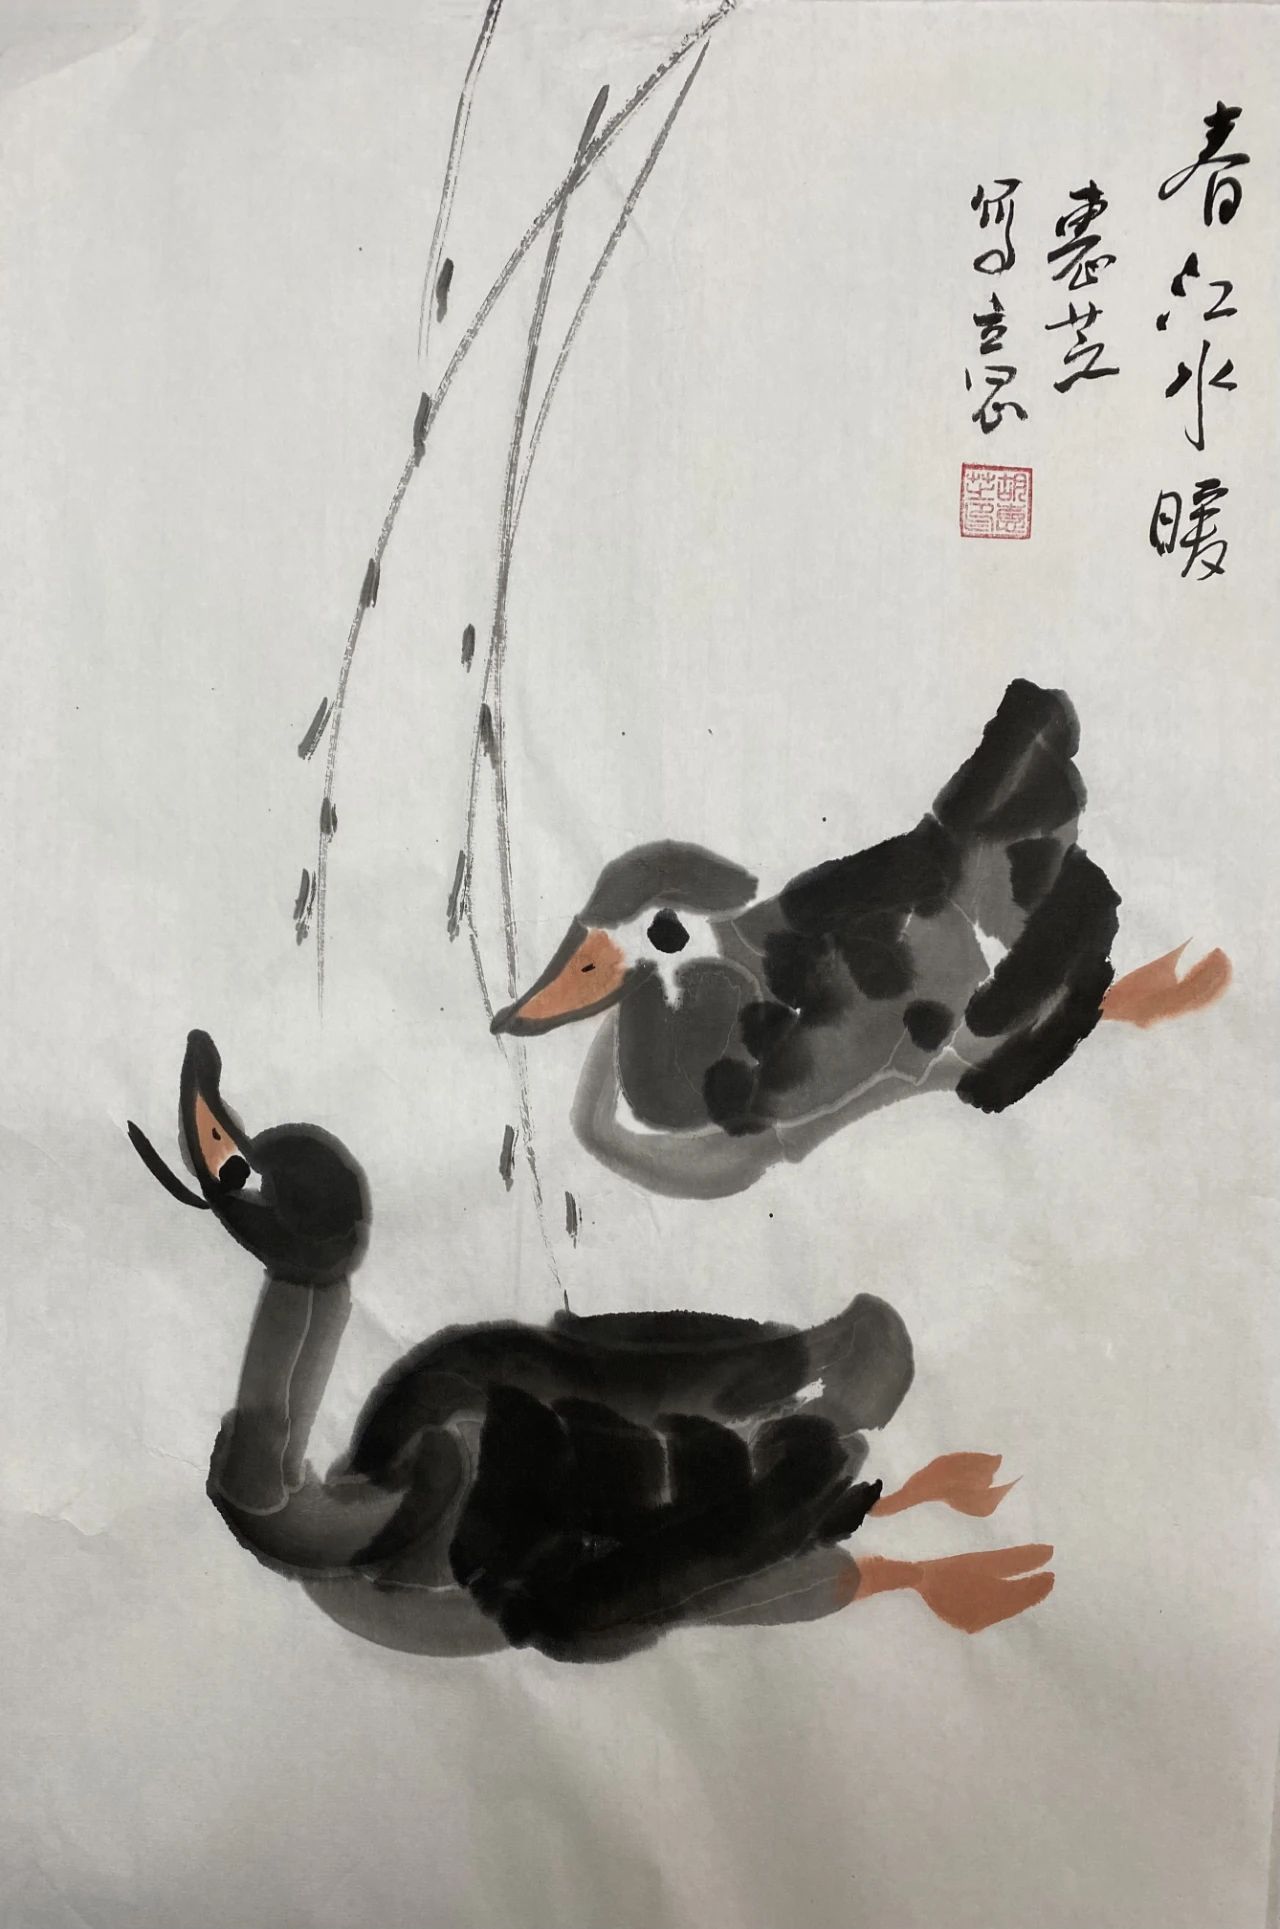 春江水暖
惠芝
写
胡惠芝印